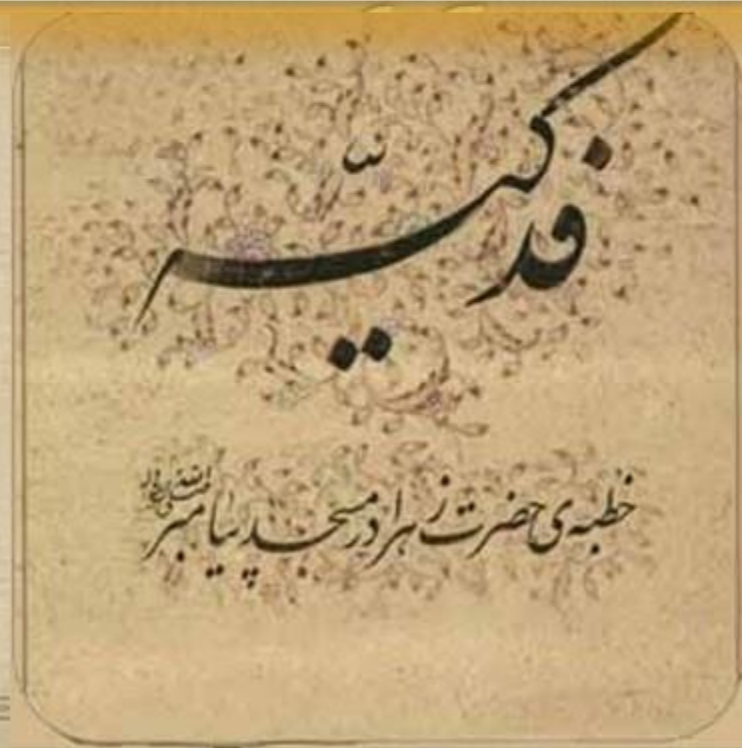 فدکیّه
خطبه‌ی حضرت زهرا در مسجد پیامبر صلی الله علیه و آله